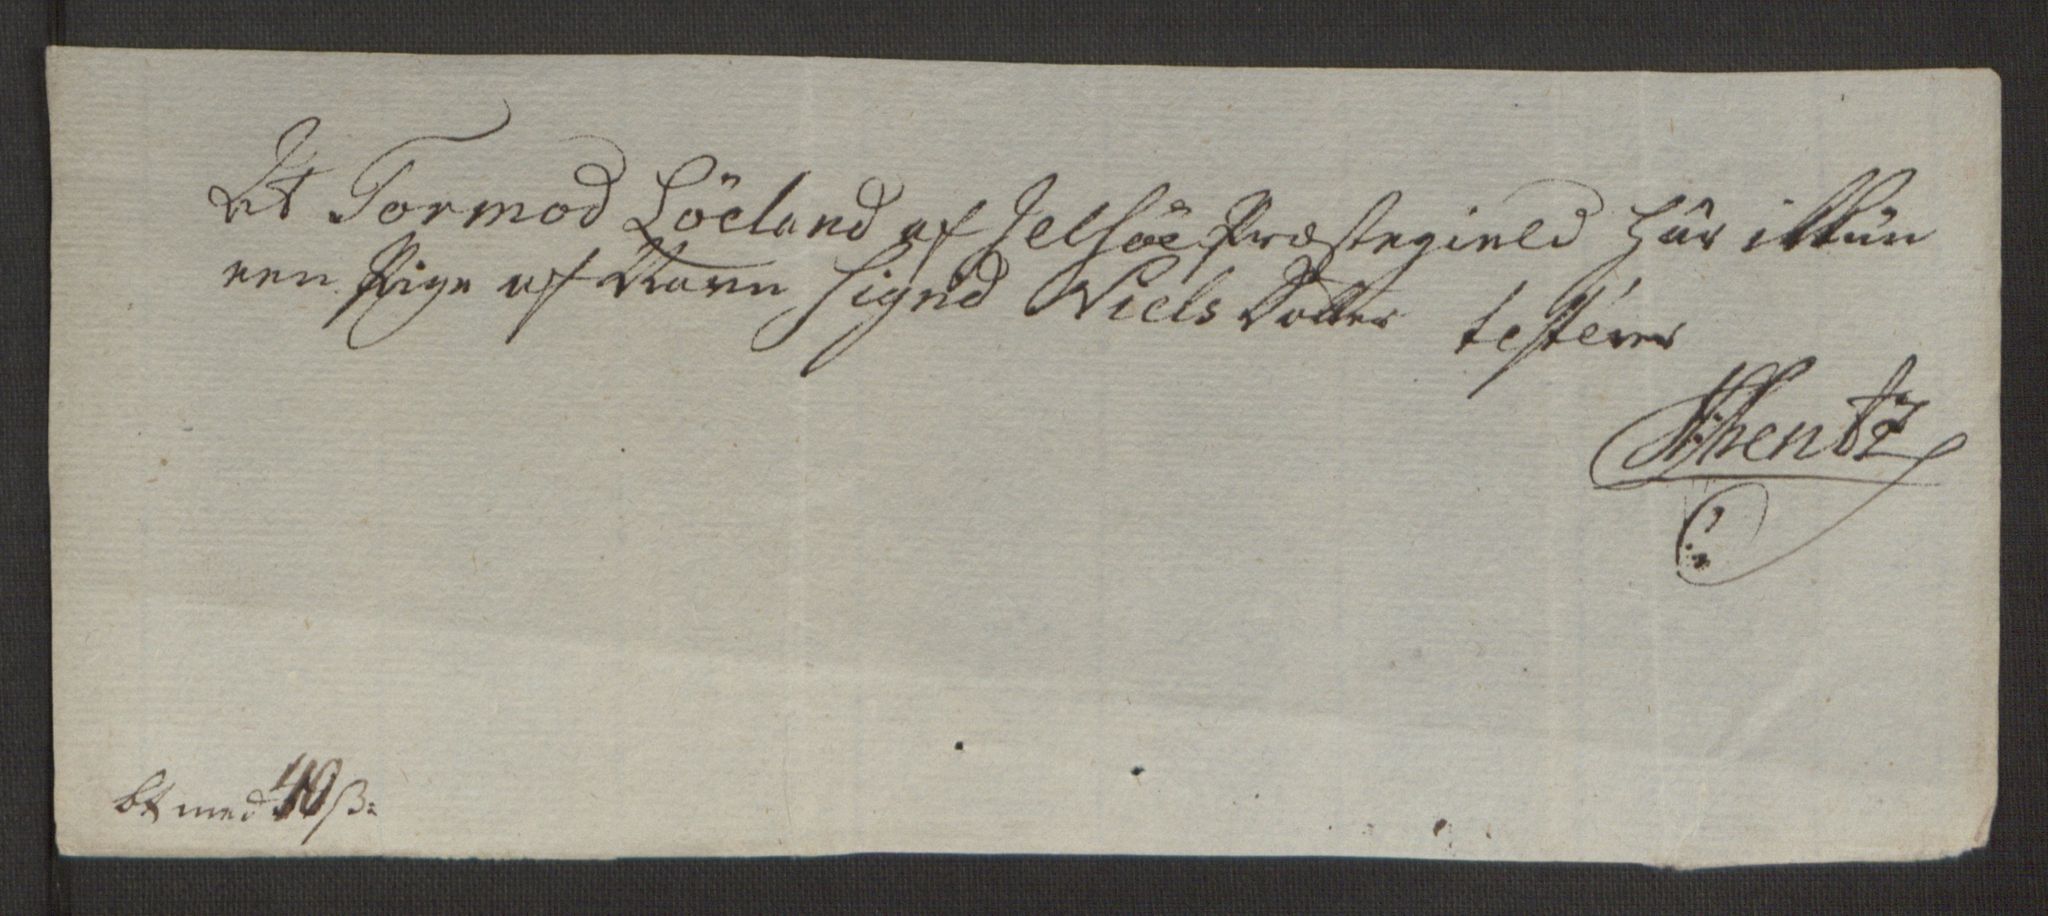 At Tormod Löeland af Jelsöe Præstegield har ikkun
een Pige af Navn Sigrid Niels Dotter testerer
Hhentz
bt med 40 ß: